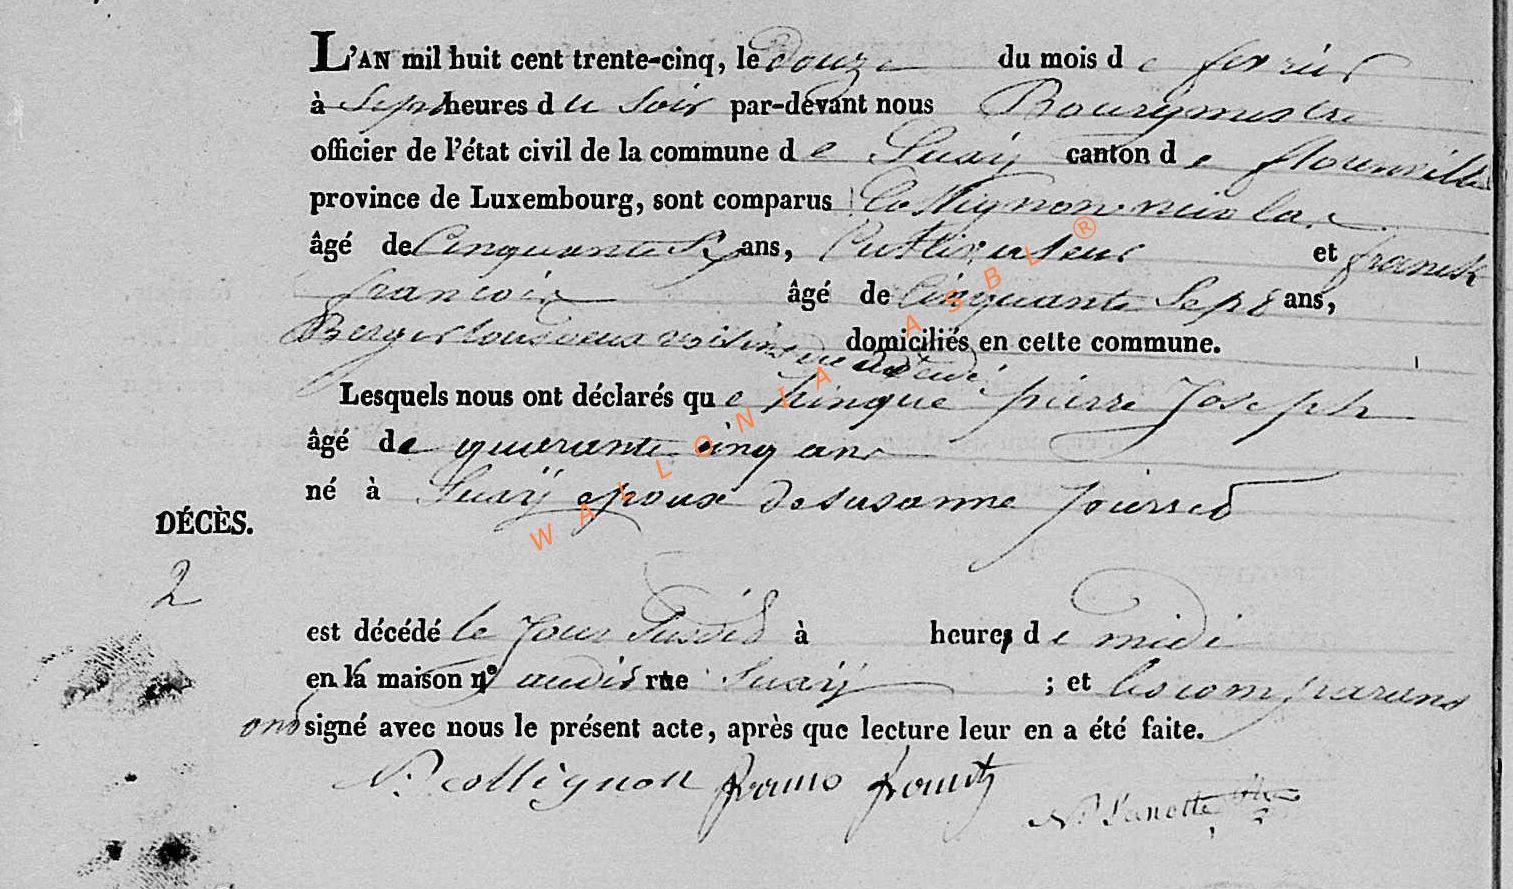 L'AN mil huit cent trente-cinq, le douze du mois de fevrier
à Sept heures d u Soir par-devant nous Bourgmestre
officier de l'état civil de la commune d e Suxÿ canton d e florenville
province de Luxembourg, sont comparus Collignon nicolas
âgé de Cinquante Six ans, Cultivateur et franck
francois âgé de Cinquante Sept ans,
Berger tous deux voisins du decedé domiciliés en cette commune.
Lesquels nous ont déclarés qu e pierre Joseph
âgé de quarante cinq ans
né à Suxÿ epoux de susanne
DÉCÈS.
2
est décédé le Jour Susdit à heures d e midi
en la maison nº audit rue Suxÿ ; et les comparans
ont signé avec nous le présent acte, après que lecture leur en a été faite.
N. collignon
WALLONIA ASBL ®